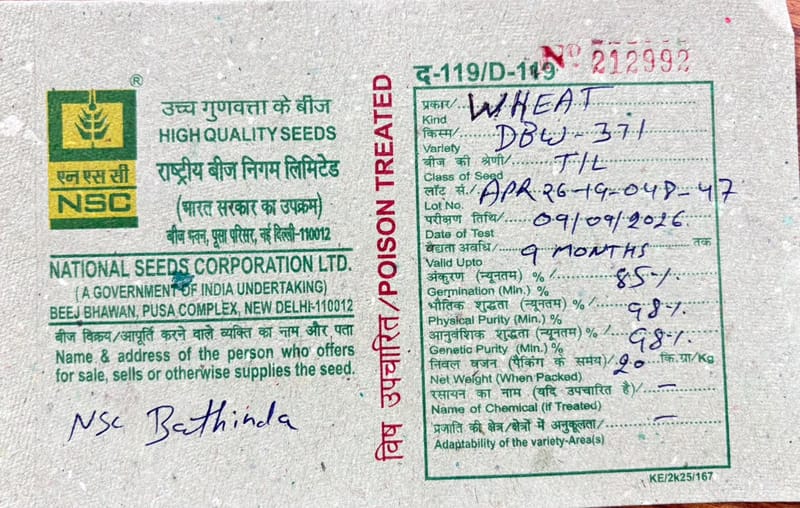 ®
एन एस सी
NSC
उच्च गुणवत्ता के बीज
HIGH QUALITY SEEDS
राष्ट्रीय बीज निगम लिमिटेड
(भारत सरकार का उपक्रम)
बीज भवन, पूसा परिसर, नई दिल्ली-110012
NATIONAL SEEDS CORPORATION LTD.
(A GOVERNMENT OF INDIA UNDERTAKING)
BEEJ BHAWAN, PUSA COMPLEX, NEW DELHI-110012
बीज विक्रय/आपूर्ति करने वाले व्यक्ति का नाम और पता
Name & address of the person who offers
for sale, sells or otherwise supplies the seed.
NSC Bathinda
विष उपचारित/POISON TREATED
द-119/D-119
No 212992
प्रकार/ WHEAT
Kind
किस्म/ DBW-371
Variety
बीज की श्रेणी/ T/L
Class of Seed
लॉट सं./ APR26-19-04D-47
Lot No.
परीक्षण तिथि/ 09/09/2026
Date of Test
वैद्यता अवधि/ 9 MONTHS तक
Valid Upto
अंकुरण (न्यूनतम) %/ 85%
Germination (Min.) %
भौतिक शुद्धता (न्यूनतम) %/ 98%
Physical Purity (Min.) %
आनुवंशिक शुद्धता (न्यूनतम) %/ 98%
Genetic Purity (Min.) %
निवल वजन (पैकिंग के समय)/ 20 कि.ग्रा/Kg
Net Weight (When Packed)
रसायन का नाम (यदि उपचारित है)/ —
Name of Chemical (if Treated)
प्रजाति की क्षेत्र/क्षेत्रों में अनुकूलता/ —
Adaptability of the variety-Area(s)
KE/2k25/167